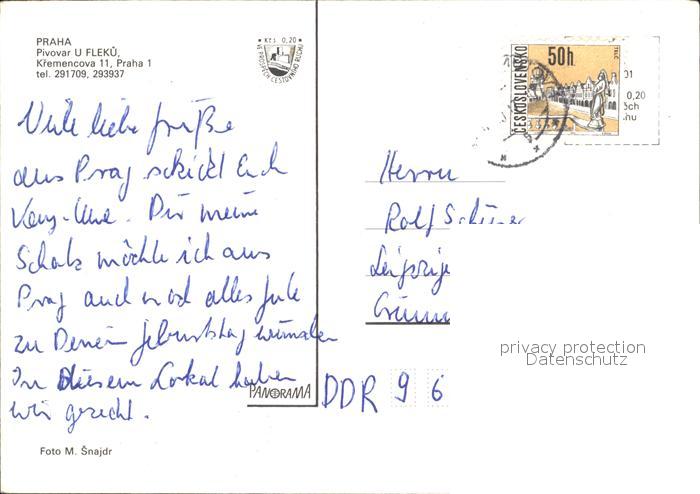 PRAHA
Pivovar U FLEKŮ,
Křemencova 11, Praha 1
tel. 291709, 293937
Kčs 0,20
VE PROSPĚCH CESTOVNÍHO RUCHU
ČESKOSLOVENSKO
50h
TELČ
01
0,20
Viele liebe Grüße
aus Prag schickt Euch
Kay-Uwe. Dir meine
Schatz möchte ich aus
Prag auch noch alles Gute
zu Deinem Geburtstag wünschen
In diesem Lokal haben
wir gezecht.
Herrn
Rolf
Leipzig
DDR 9 6
PANORAMA
privacy protection
Datenschutz
Foto M. Šnajdr